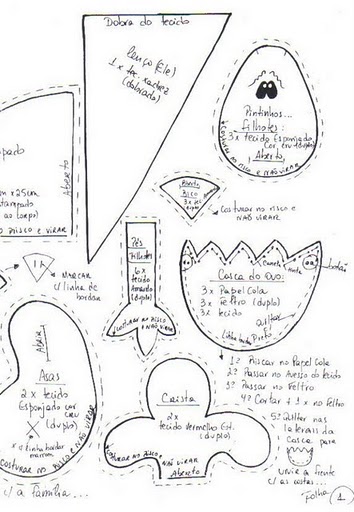 Dobra do tecido
lenço (Ele)
1 x tec. xadrez
(dobrado)
Pintinhos...
filhotes:
3x tecido Esponjado
Cor cru (duplo)
Aberto
Costurar no risco e virar
pado
m x 25cm
stampado
ao corpo)
risco e virar
Aberto
Bico
3x tec
Costurar no risco e
não virar
1A
Marcar
c/ linha de
bordar
Pés
Filhotes
6x
tecido
(duplo)
Costurar no risco e não virar
botão
Casca do Ovo:
3x Papel Cola
3x Feltro (duplo)
3x tecido
Quilter
Linha Preto
1º Riscar no Papel Cola
2º Passar no Avesso do tecido
3º Passar no Feltro
4º Cortar + 1x no Feltro
5º Quilter nas
laterais da
Casca para
unir a frente
c/ as costas...
Abrir
Asas
2x tecido
Esponjado cor
cru
(duplo)
X
tinta bordar
marrom
Costurar no risco e não virar
Crista
2x
tecido vermelho Est.
(duplo)
Costurar no risco e não virar
Aberto
c/ a família...
Folha 1